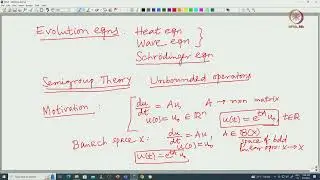 Evolution eqns : Heat eqn
Wave eqn
Schrödinger eqn
Semigroup Theory Unbounded operators
Motivation : du/dt = Au, A → n×n matrix
u(0) = u₀ ∈ ℝⁿ u(t) = e^{tA} u₀ t∈ℝ
Banach space X : du/dt = Au, A ∈ B(X)
u(0) = u₀ space of bdd
u(t) = e^{tA} u₀ linear oprs: X→X